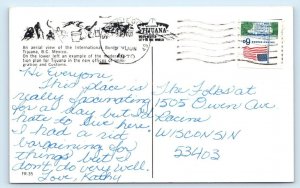 TIJUANA
An aerial view of the International Border
Tijuana, B.C. Mexico.
On the lower left an example of the modern
tion plan for Tijuana in the new offices of
gration and Customs.
Hi Everyone,
This place is
really fascinating
for a day but I'd
hate to live here.
I had a riot
bargaining for
things but I
don't do very well.
Love, Kathy
The Folks at
1505 Owen Ave
Racine
WISCONSIN
53403
FR-35